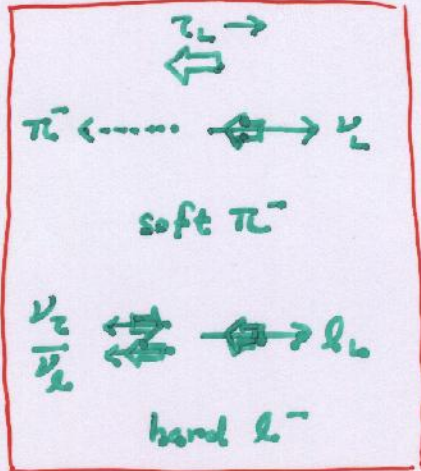 τ_L →
π⁻ ν_L
soft π⁻
ν_τ
ν̄_ℓ ℓ_L
hard ℓ⁻